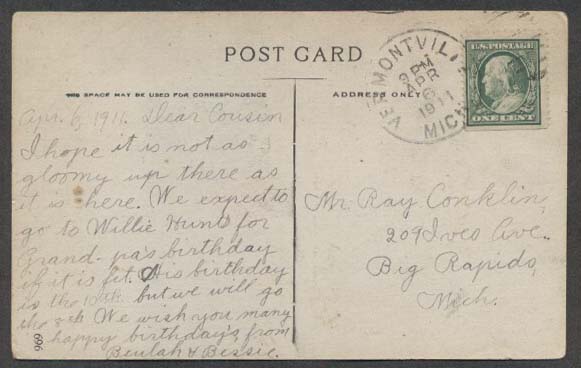 POST CARD
THIS SPACE MAY BE USED FOR CORRESPONDENCE
ADDRESS ONLY
VERMONTVILLE
2 PM
APR
6
1911
MICH.
U.S. POSTAGE
ONE CENT
Apr. 6, 1911. Dear Cousin
I hope it is not as
gloomy up there as
it is here. We expect to
go to Willie Hunts for
Grand-pa's birthday
if it is fit. His birthday
is the 10th but we will go
the 8th We wish you many
happy birthday's, from
Beulah & Bessie.
Mr. Ray Conklin,
209 Ives Ave.
Big Rapids,
Mich.
969